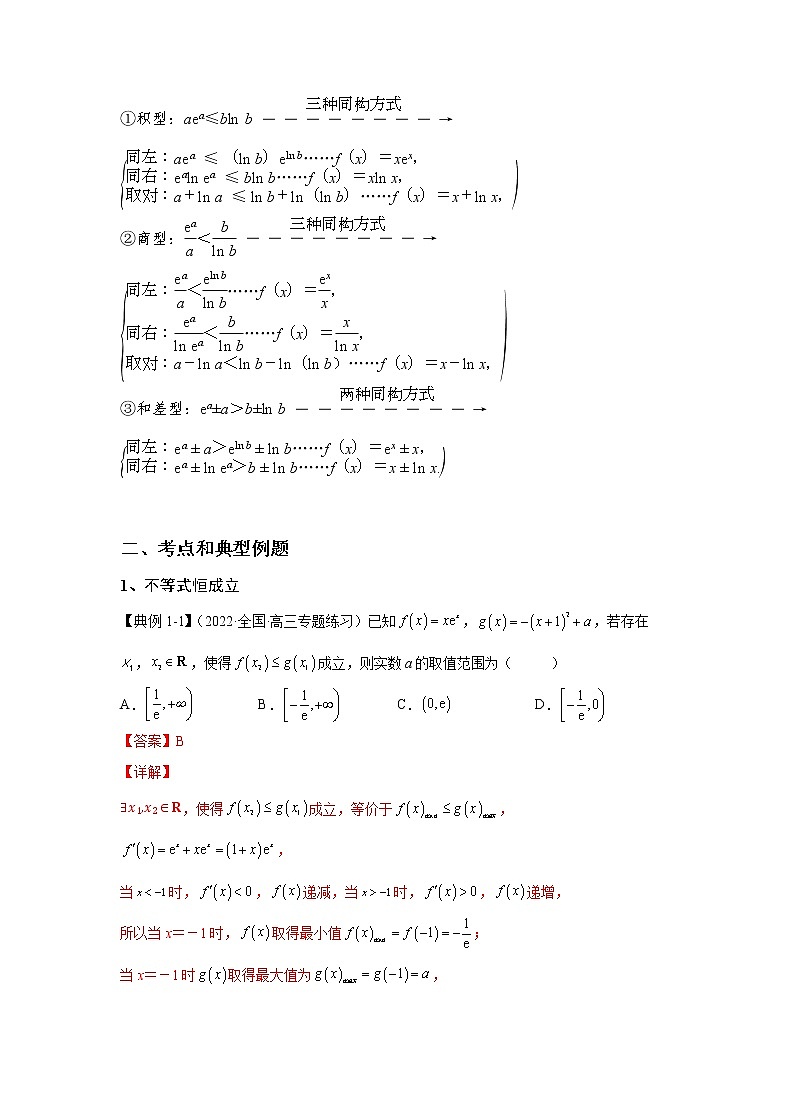 三种同构方式
①积型：aeᵃ≤bln b －－－－－－－－→
同左：aeᵃ ≤ （ln b）e^{ln b}……f（x）＝xeˣ，
同右：eᵃln eᵃ ≤ bln b……f（x）＝xln x，
取对：a＋ln a ≤ ln b＋ln（ln b）……f（x）＝x＋ln x，
三种同构方式
②商型：eᵃ/a＜b/ln b －－－－－－－－→
同左：eᵃ/a＜e^{ln b}/ln b……f（x）＝eˣ/x，
同右：eᵃ/ln eᵃ＜b/ln b……f（x）＝x/ln x，
取对：a－ln a＜ln b－ln（ln b）……f（x）＝x－ln x，
两种同构方式
③和差型：eᵃ±a＞b±ln b －－－－－－－－→
同左：eᵃ±a＞e^{ln b}±ln b……f（x）＝eˣ±x，
同右：eᵃ±ln eᵃ＞b±ln b……f（x）＝x±ln x.
二、考点和典型例题
1、不等式恒成立
【典例 1-1】（2022·全国·高三专题练习）已知 f(x)=xeˣ，g(x)=-(x+1)²+a，若存在
x₁，x₂∈R，使得 f(x₂)≤g(x₁)成立，则实数 a 的取值范围为（　　）
A．[1/e,+∞) B．[-1/e,+∞) C．(0,e) D．[-1/e,0)
【答案】B
【详解】
∃x₁,x₂∈R，使得 f(x₂)≤g(x₁)成立，等价于 f(x)min≤g(x)max，
f′(x)=eˣ+xeˣ=(1+x)eˣ，
当 x<-1时，f′(x)<0，f(x)递减，当 x>-1时，f′(x)>0，f(x)递增，
所以当 x＝－1 时，f(x)取得最小值 f(x)min=f(-1)=-1/e；
当 x＝－1 时 g(x)取得最大值为 g(x)max=g(-1)=a，